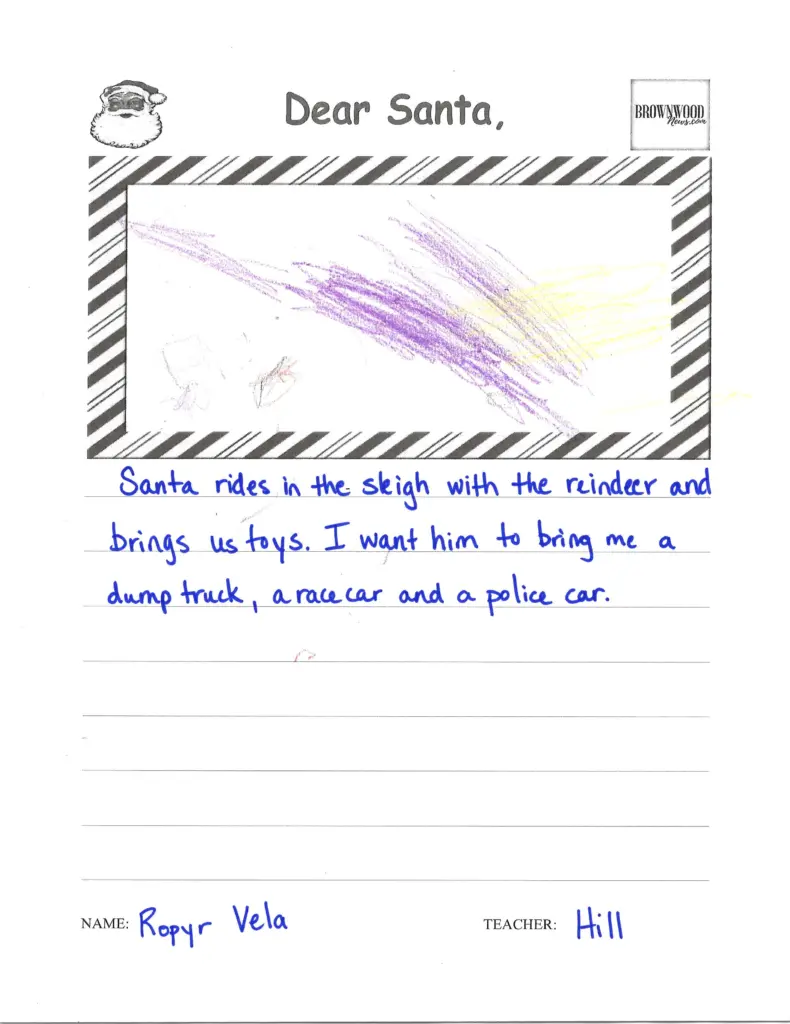 Dear Santa,
BROWNWOOD
News.com
Santa rides in the sleigh with the reindeer and
brings us toys. I want him to bring me a
dump truck, a race car and a police car.
NAME: Ropyr Vela
TEACHER: Hill